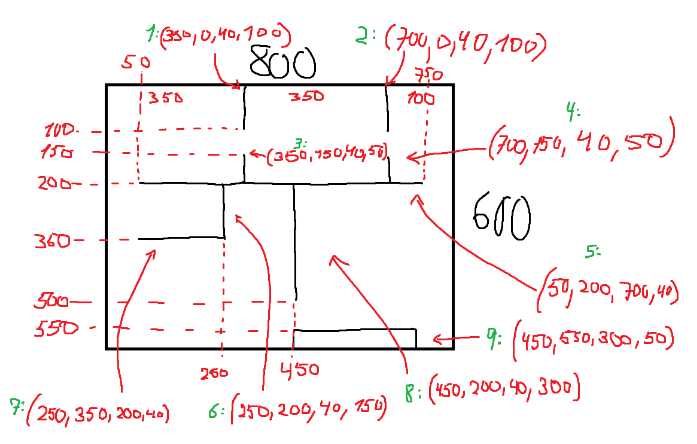 1: (350, 0, 40, 100)
2: (700, 0, 40, 100)
800
50
750
350
350
100
100
150
200
350
500
550
3:
(350, 150, 40, 50)
4:
(700, 150, 40, 50)
600
5:
(50, 200, 700, 40)
9: (450, 550, 300, 50)
250
450
7: (250, 350, 200, 40)
6: (250, 200, 40, 150)
8: (450, 200, 40, 300)